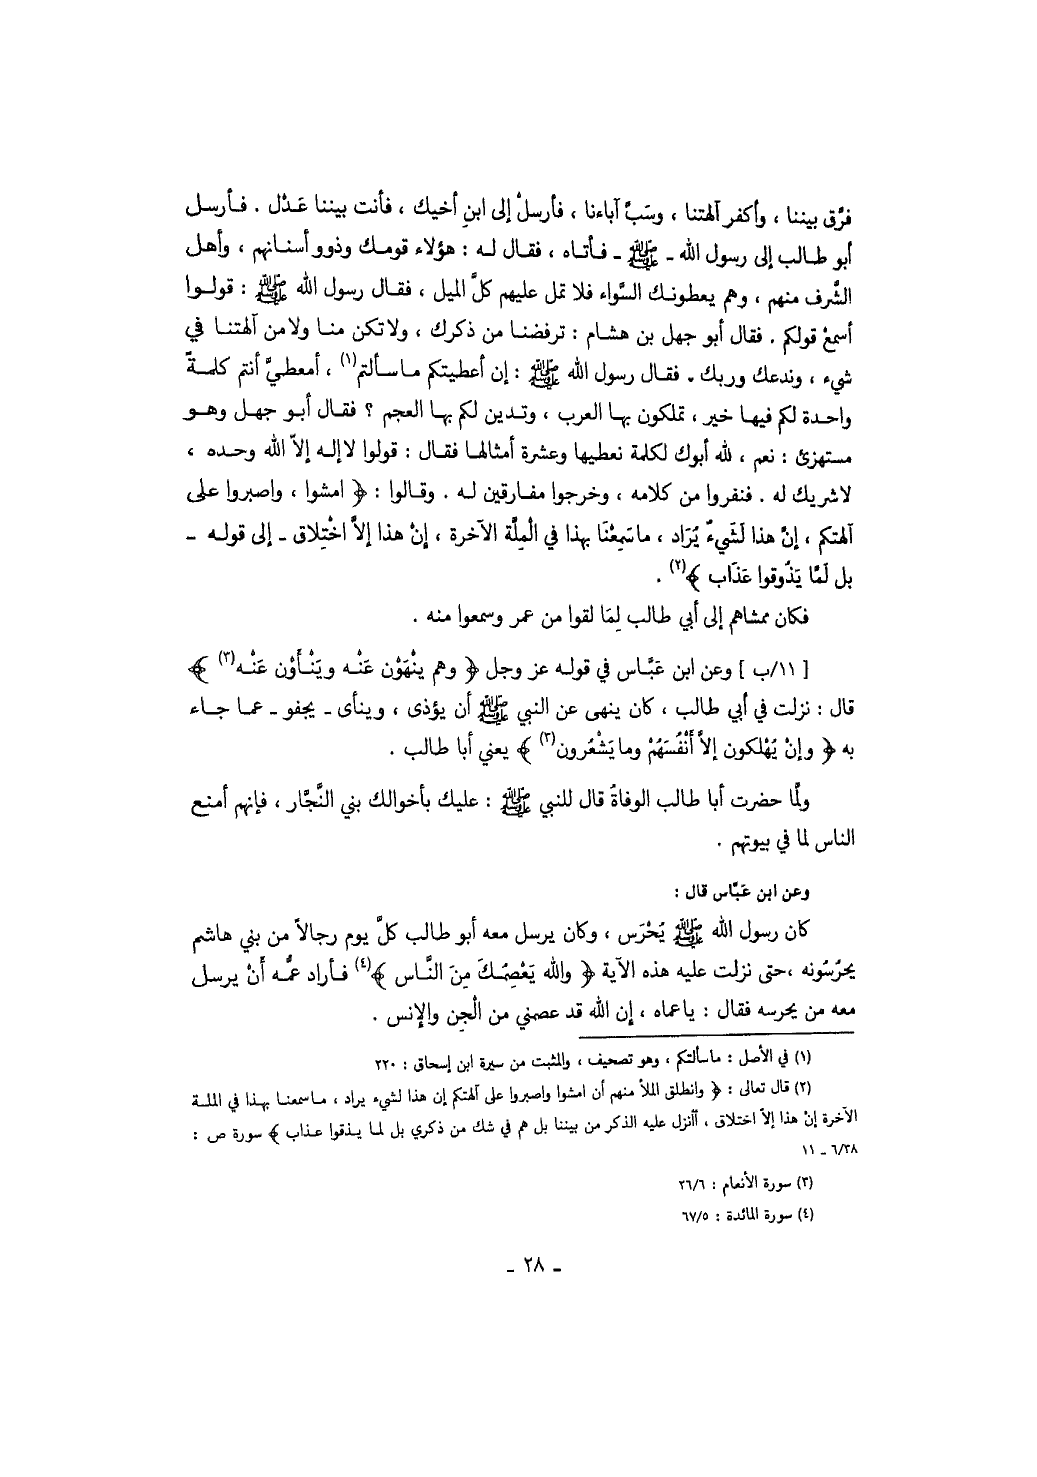 فرّق بيننا ، وأكفر آلهتنا ، وسَبَّ آباءنا ، فأرسلْ إلى ابنِ أخيك ، فأنت بيننا عَدْل . فأرسل
أبو طالب إلى رسول الله ـ ﷺ ـ فأتاه ، فقال له : هؤلاء قومك وذوو أسنانهم ، وأهل
الشّرف منهم ، وهم يعطونك السّواء فلا تمل عليهم كلَّ الميل ، فقال رسول الله ﷺ : قولوا
أسمعْ قولكم . فقال أبو جهل بن هشام : ترفضنا من ذكرك ، ولاتكن منا ولامن آلهتنا في
شيء ، وندعك وربك . فقال رسول الله ﷺ : إن أعطيتكم ماسألتم(١) ، أمعطيَّ أنتم كلمةً
واحدة لكم فيها خير ، تملكون بها العرب ، وتدين لكم بها العجم ؟ فقال أبو جهل وهو
مستهزئ : نعم ، لله أبوك لكلمة نعطيها وعشرة أمثالها فقال : قولوا لاإله إلاّ الله وحده ،
لاشريك له . فنفروا من كلامه ، وخرجوا مفارقين له . وقالوا : ﴿ امشوا ، واصبروا على
آلهتكم ، إنَّ هذا لَشَيءٌ يُرَاد ، ماسَمِعْنَا بهذا في الْمِلَّة الآخرة ، إنْ هذا إلاَّ اخْتِلاق ـ إلى قوله ـ
بل لَمَّا يَذُوقوا عَذَاب ﴾(٢) .
فكان ممشاهم إلى أبي طالب لِمَا لقوا من عمر وسمعوا منه .
[ ١١/ب ] وعن ابن عَبَّاس في قوله عز وجل ﴿ وهم يَنْهَوْن عَنْه ويَنْأَوْن عَنْه(٣) ﴾
قال : نزلت في أبي طالب ، كان ينهى عن النبي ﷺ أن يؤذى ، وينأى ـ يجفو ـ عما جاء
به ﴿ وإنْ يُهْلكون إلاَّ أَنْفُسَهُمْ ومايَشْعُرون(٣) ﴾ يعني أبا طالب .
ولّما حضرت أبا طالب الوفاةُ قال للنبي ﷺ : عليك بأخوالك بني النَّجَّار ، فإنهم أمنع
الناس لما في بيوتهم .
وعن ابن عَبَّاس قال :
كان رسول الله ﷺ يُحْرَس ، وكان يرسل معه أبو طالب كلَّ يوم رجالاً من بني هاشم
يحرُسُونه ،حتى نزلت عليه هذه الآية ﴿ والله يَعْصِمُكَ مِنَ النَّاس ﴾(٤) فأراد عمُّه أَنْ يرسل
معه من يحرسه فقال : ياعماه ، إن الله قد عصمني من الْجِن والإنس .
(١) في الأصل : ماسألتكم ، وهو تصحيف ، والمثبت من سيرة ابن إسحاق : ٢٢٠
(٢) قال تعالى : ﴿ وانطلق الملأ منهم أن امشوا واصبروا على آلهتكم إن هذا لشيء يراد ، ماسمعنا بهذا في الملة
الآخرة إنْ هذا إلاّ اختلاق ، أأنزل عليه الذكر من بيننا بل هم في شك من ذكري بل لما يذقوا عذاب ﴾ سورة ص :
٦/٣٨ ـ ١١
(٣) سورة الأنعام : ٢٦/٦
(٤) سورة المائدة : ٦٧/٥
ـ ٢٨ ـ